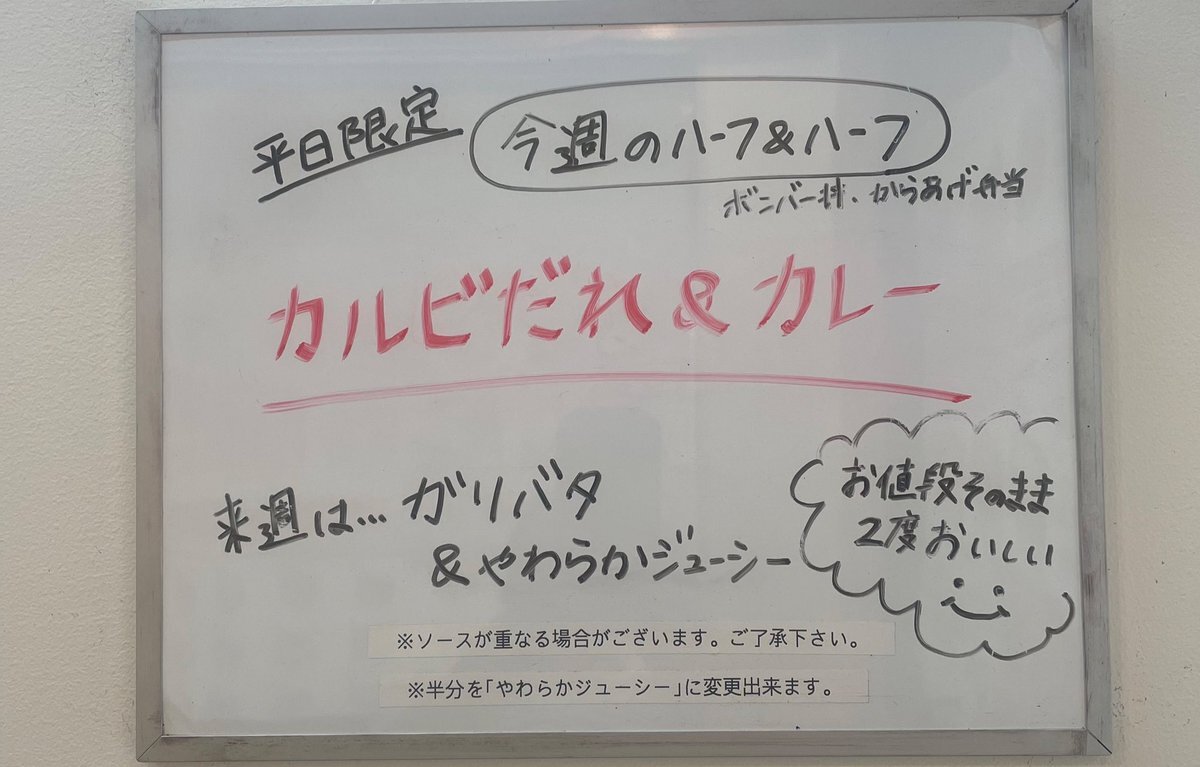 平日限定 今週のハーフ&ハーフ
ボンバー丼、からあげ弁当
カルビだれ&カレー
来週は…ガリバタ
&やわらかジューシー
お値段そのまま
2度おいしい
※ソースが重なる場合がございます。ご了承下さい。
※半分を「やわらかジューシー」に変更出来ます。